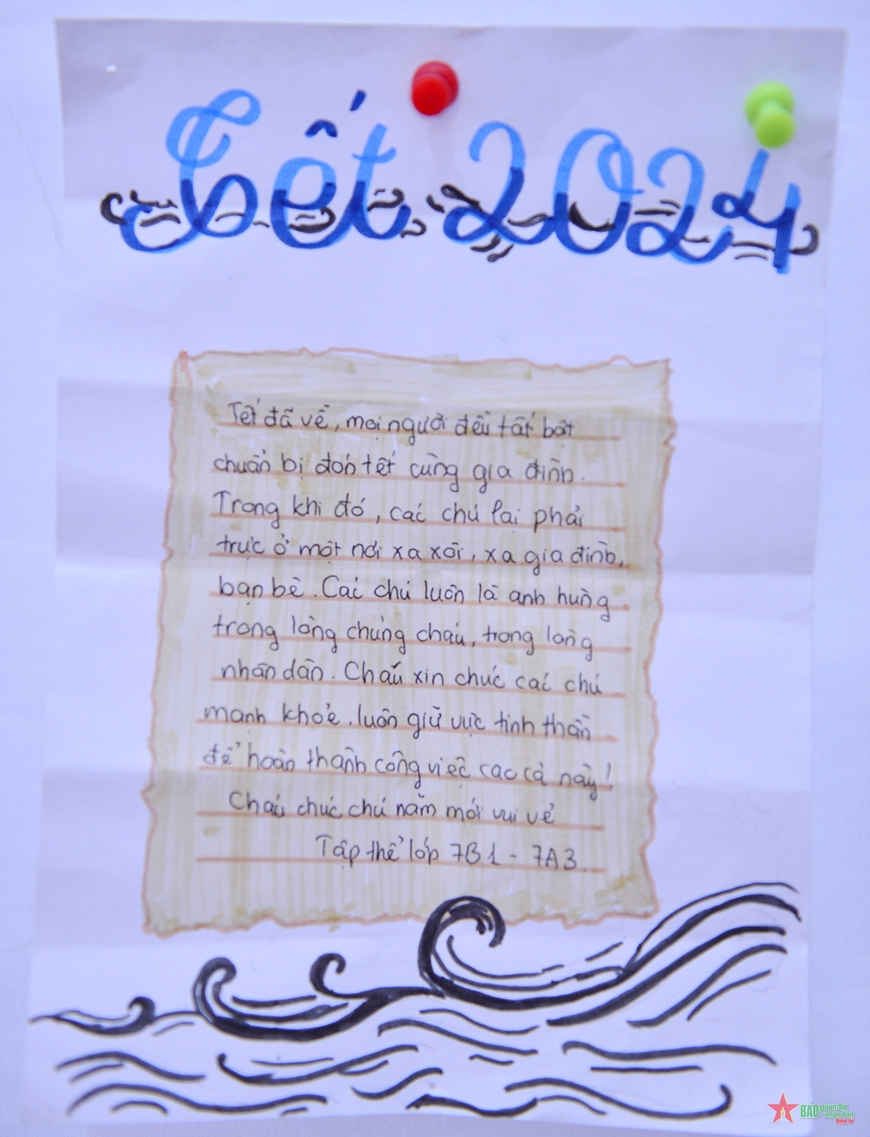 Tết 2024
Tết đã về, mọi người đều tất bật
chuẩn bị đón tết cùng gia đình.
Trong khi đó, các chú lại phải
trực ở một nơi xa xôi, xa gia đình,
bạn bè. Các chú luôn là anh hùng
trong lòng chúng cháu, trong lòng
nhân dân. Cháu xin chúc các chú
mạnh khỏe, luôn giữ vực tinh thần
để hoàn thành công việc cao cả này!
Cháu chúc chú năm mới vui vẻ
Tập thể lớp 7B1 - 7A3.
BÁO quân đội nhân dân
Điện tử